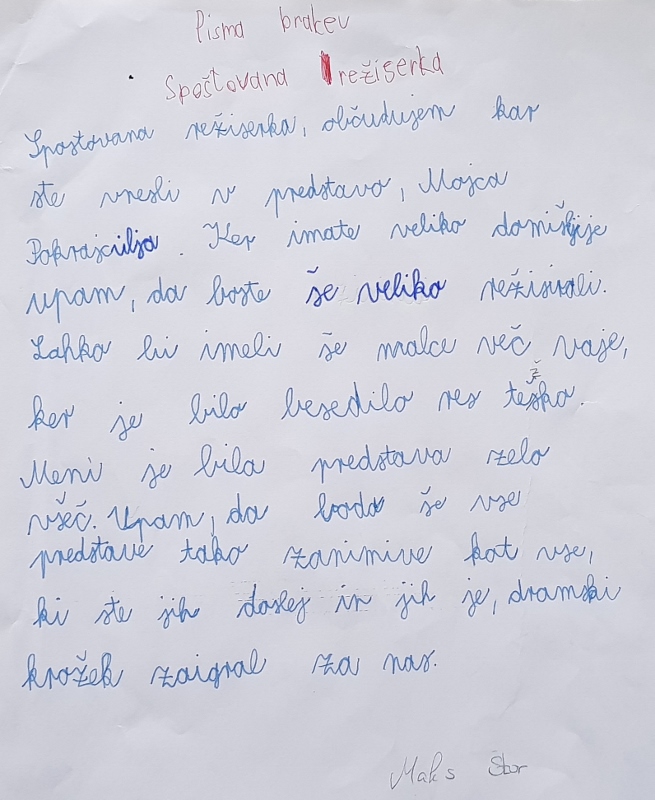 Pisma bralcev
Spoštovana režiserka
Spostovana režiserka, občudujem kar
ste vnesli v predstavo, Mojca
Pokrajculja. Ker imate veliko domišljije
upam, da boste še veliko režisirali.
Lahko bi imeli še malce več vaje,
ker je bilo besedilo res teško.
ž
Meni je bila predstava zelo
všeč. Upam, da bodo še vse
predstave tako zanimive kot vse,
ki ste jih doslej in jih je, dramski
krožek zaigral za nas.
Maks